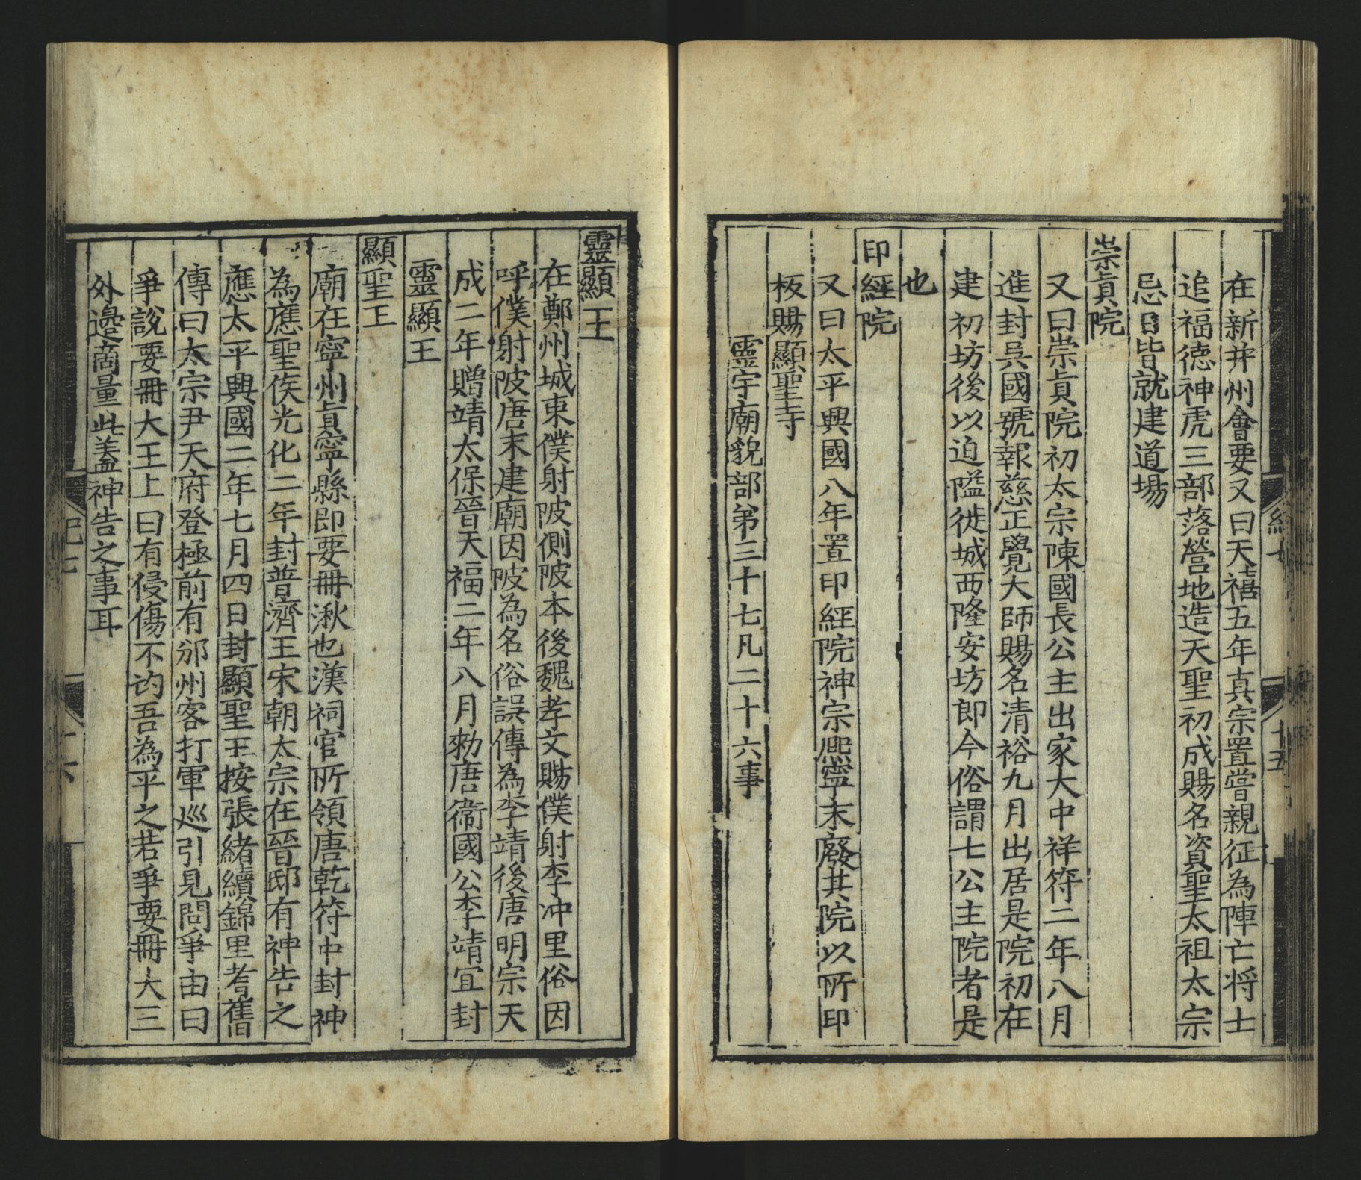 在新井州會要又曰天禧五年真宗置嘗親征為陣亡將士
追福德神虎三部落營地造天聖初成賜名資聖太祖太宗
忌日皆就建道場
崇真院
又曰崇真院初太宗陳國長公主出家大中祥符二年八月
進封吳國號報慈正覺大師賜名清裕九月出居是院初在
建初坊後以迫隘徙城西隆安坊郎今俗謂七公主院者是
也
印經院
又曰太平興國八年置印經院神宗熈寧末廢其院以所印
板賜顯聖寺
靈宇廟貌部第三十七凡二十六事
十五
靈顯王
在鄭州城東僕射陂側陂本後魏孝文賜僕射李冲里俗因
呼僕射陂唐末建廟因陂為名俗誤傳為李靖後唐明宗天
成二年贈靖太保晉天福二年八月勑唐衞國公李靖宜封
靈顯王
顯聖王
廟在寧州真寧縣即要冊湫也漢祠官所領唐乾符中封神
為應聖侯光化二年封普濟王宋朝太宗在晉邸有神告之
應太平興國二年七月四日封顯聖王按張緒續錦里耆舊
傳曰太宗尹天府登極前有邠州客打軍巡引見問爭由曰
爭說要冊大王上曰有侵傷不訥吾為平之若爭要冊大三
外邊商量此蓋神告之事耳